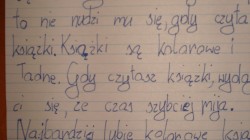 to nie nudzi mu się, gdy czyta
książki. Książki są kolorowe i
ładne. Gdy czytasz książki, wydaje
ci się, że czas szybciej mija.
Najbardziej lubię kolorowe